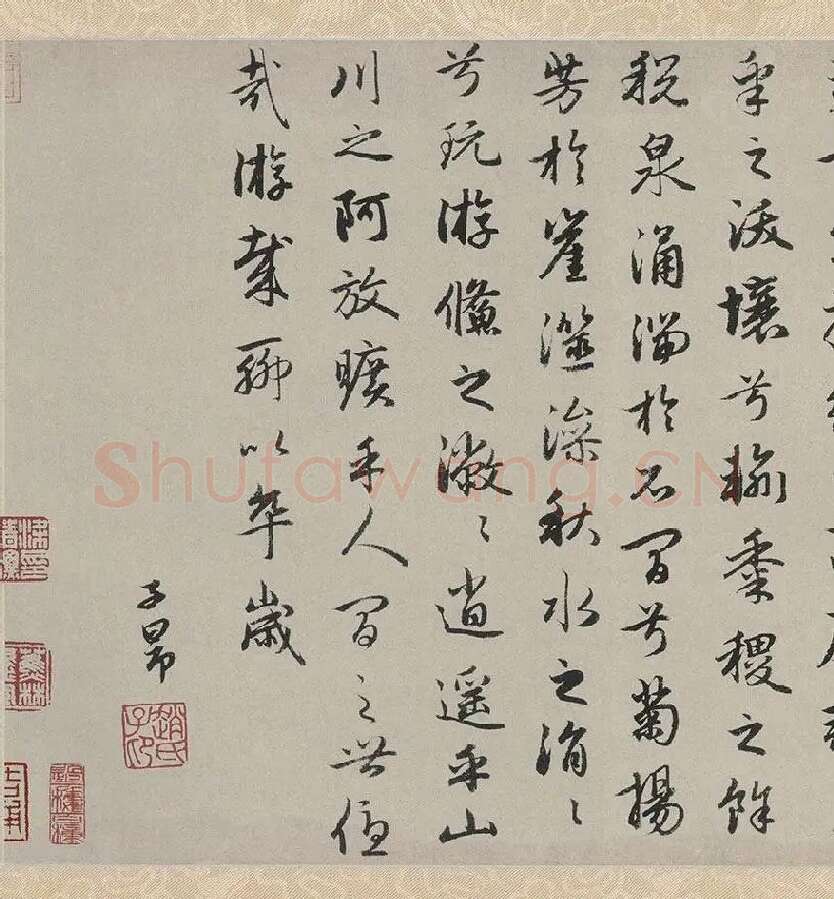 皋之沃壤兮輸黍稷之餘
稅泉涌湍於石間兮菊揚
芳於崖澨澡秋水之涓〻
兮玩游鯈之潎〻逍遥乎山
川之阿放曠乎人間之世優
哉游哉聊以卒歲
子昂
趙氏子昂
Shufawang.CN